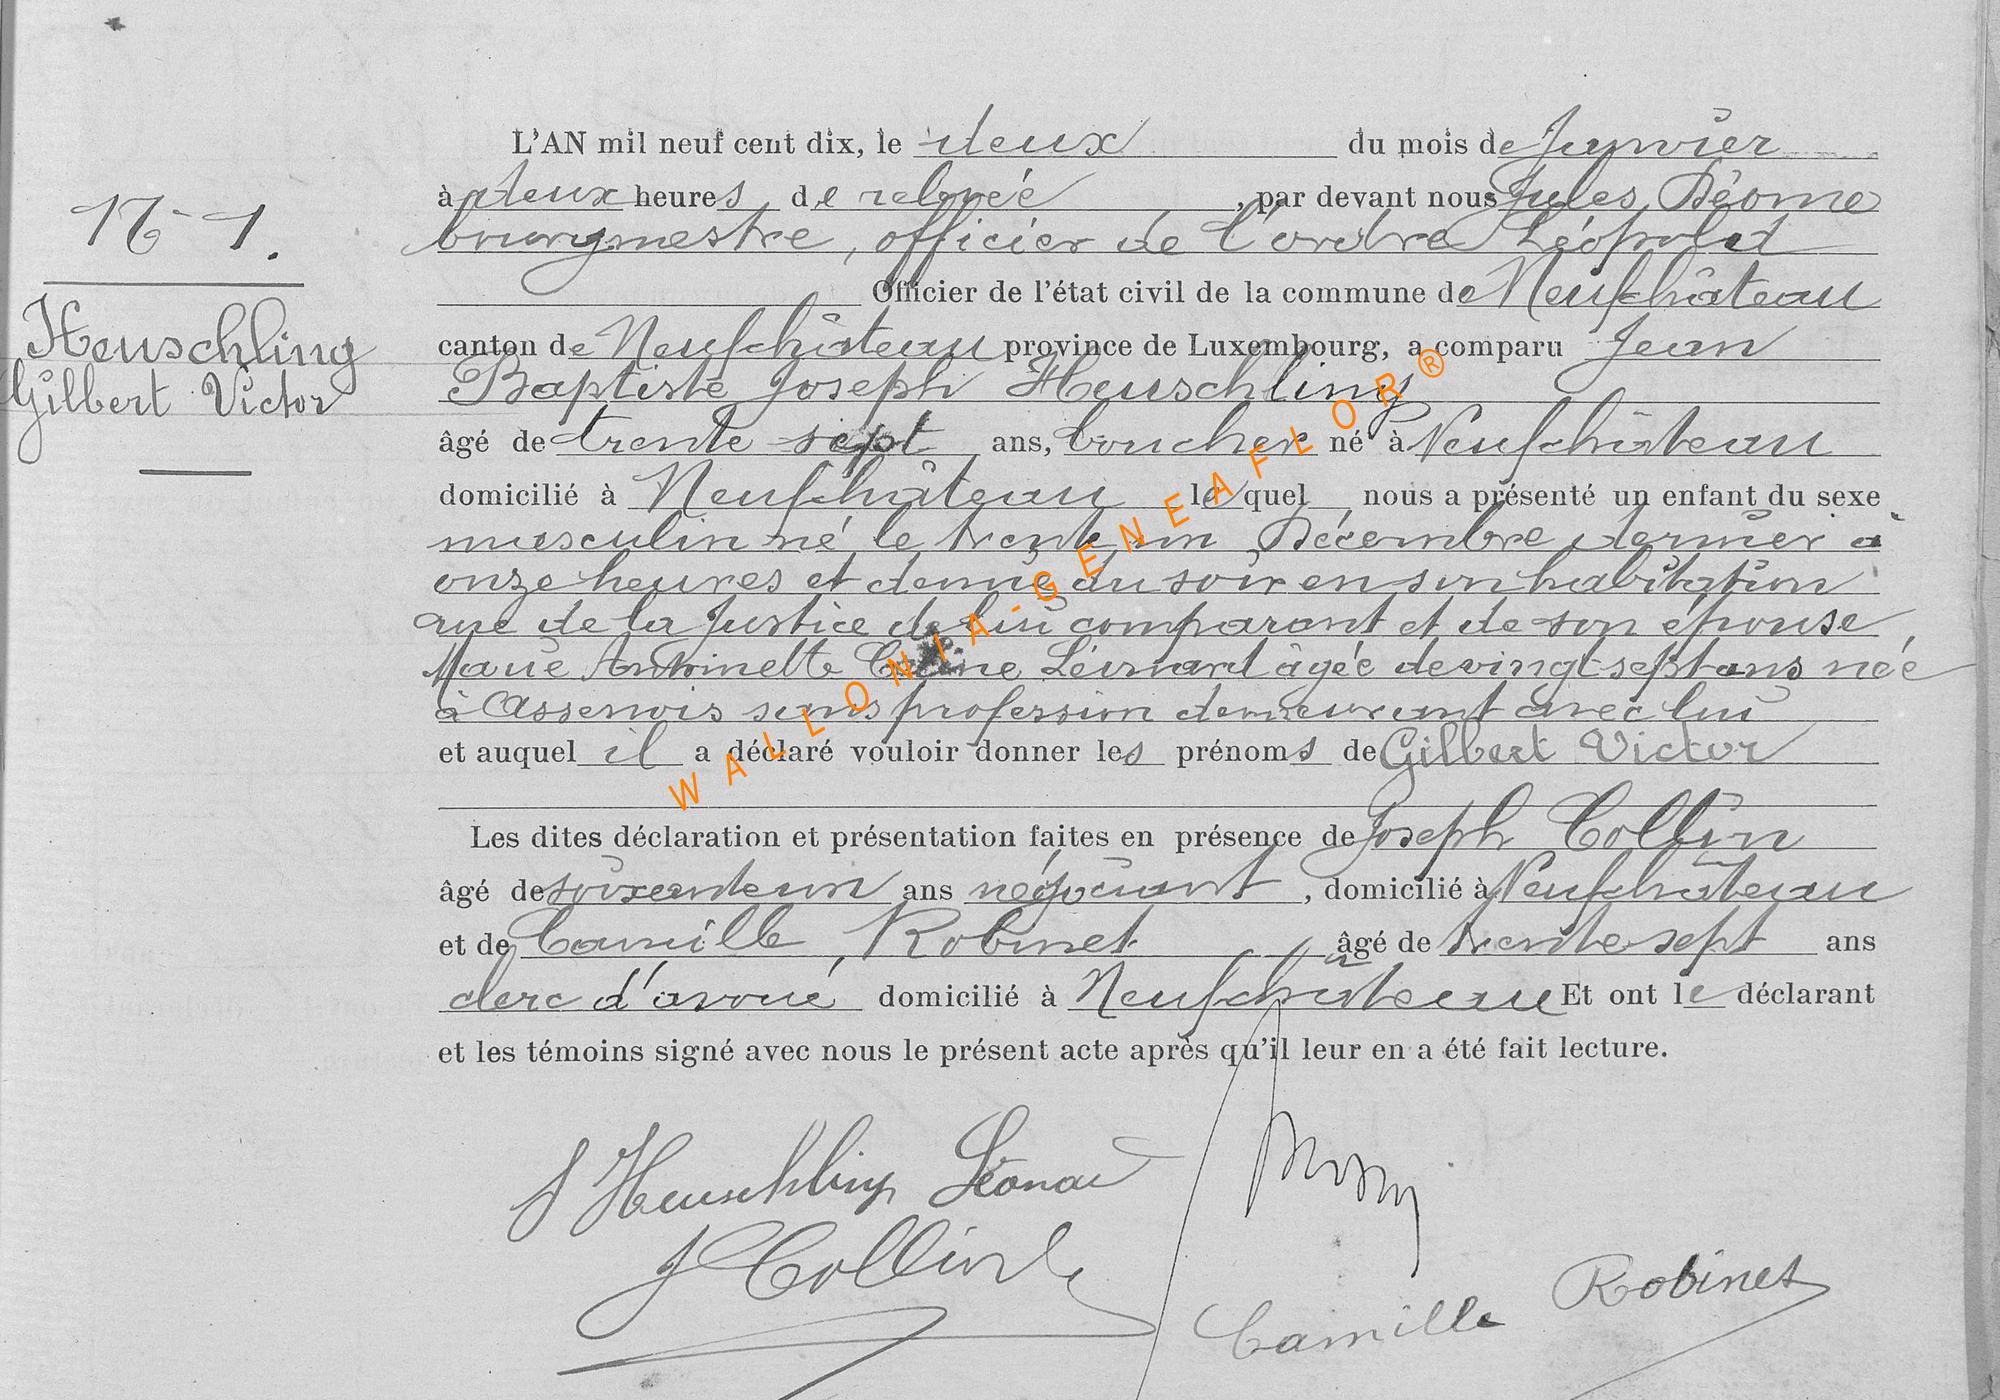 L'AN mil neuf cent dix, le deux du mois de Janvier
à deux heures de relevée, par devant nous Jules Déome
bourgmestre, officier de l'ordre Léopold
Officier de l'état civil de la commune de Neufchâteau
canton de Neufchâteau province de Luxembourg, a comparu Jean
Baptiste Joseph Heuschling
âgé de trente sept ans, boucher né à Neufchâteau
domicilié à Neufchâteau lequel nous a présenté un enfant du sexe
musculin né le trente un Décembre dernier à
onze heures et demie du soir en son habitation
rue de la Justice de lui comparant et de son épouse,
Marie Antoinette Léonard âgée de vingt sept ans née
à Assenois sans profession demeurant avec lui
et auquel il a déclaré vouloir donner les prénoms de Gilbert Victor
Les dites déclaration et présentation faites en présence de Joseph Collin
âgé de soixante un ans négociant, domicilié à Neufchâteau
et de Camille Robinet âgé de trente sept ans
clerc d'avoué domicilié à Neufchâteau Et ont le déclarant
et les témoins signé avec nous le présent acte après qu'il leur en a été fait lecture.
N° 1.
Heuschling
Gilbert Victor
J Heuschling Léonard
J Collin
Camille Robinet
WALLONIA-GENEAFLOR®